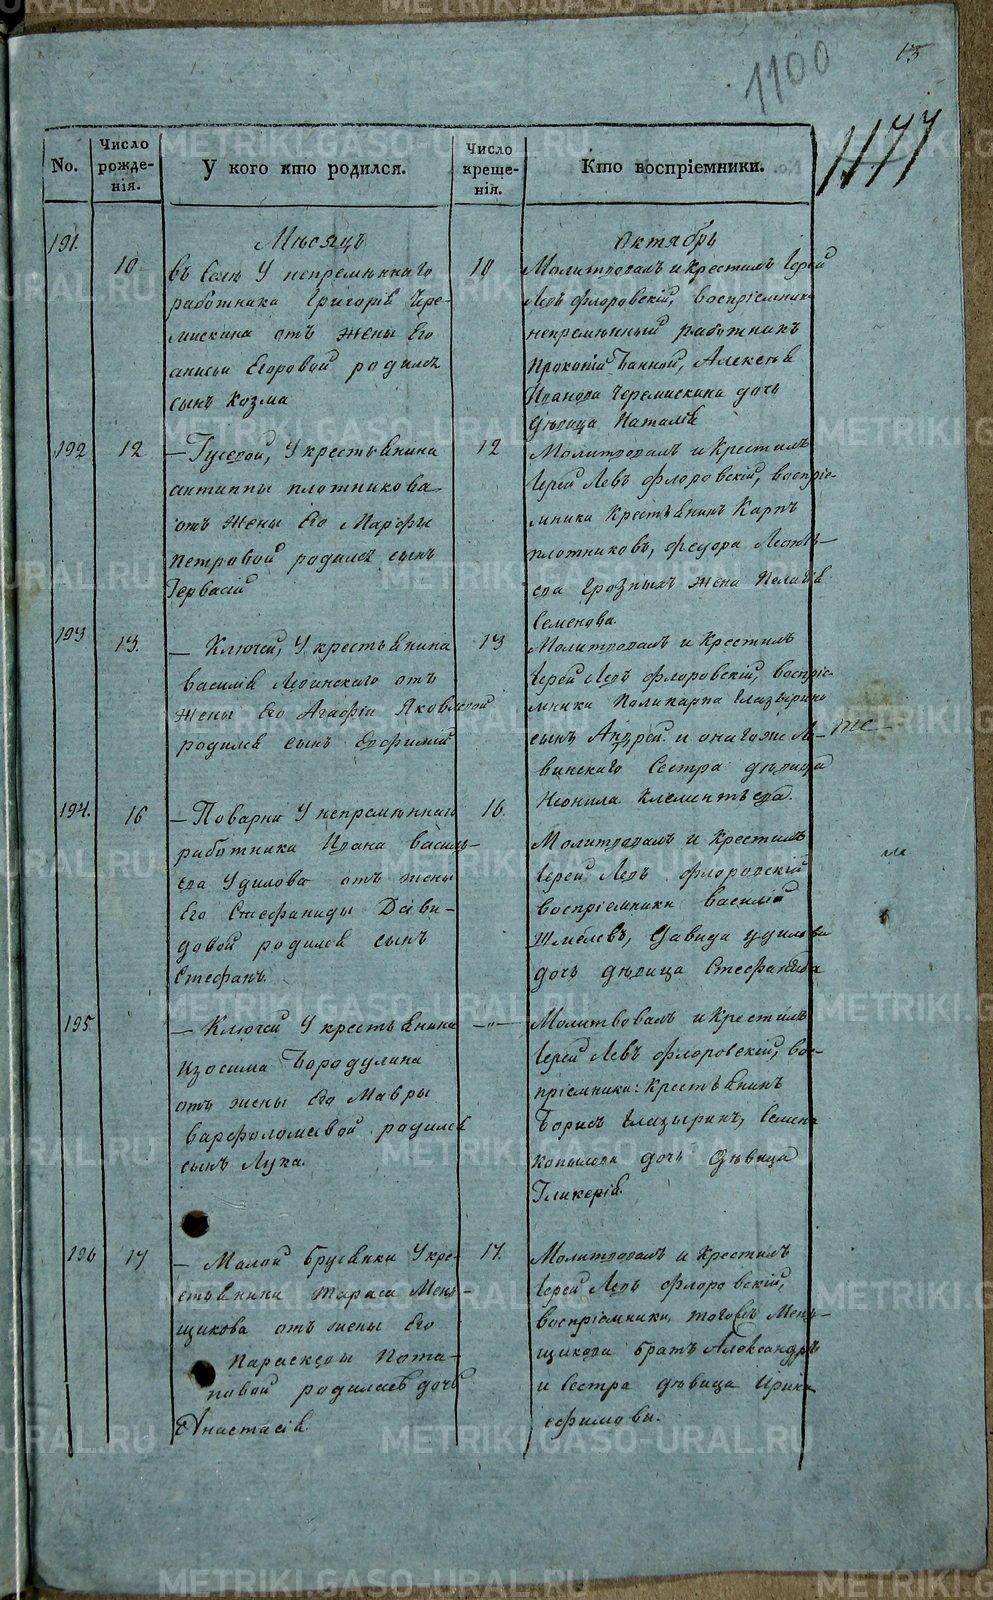 15
1100
1177
No.
Число рожденія.
У кого кто родился.
Число крещенія.
Кто воспріемники.
Мѣсяцъ
Октябрь
191.
10
въ Селѣ У непремѣннаго
работника Григорія Чере-
мискина отъ жены Его
анисьи Егоровой родился
сынъ Козма
10
Молитвовалъ и крестилъ Іерей
Левъ флоровскій, воспріемники
непремѣнный работникъ
Прокопій Банной, Алексѣя
Иванова Черемискина дочь
дѣвица Наталія
192
12
– Гусевой, У крестьянина
антиппы плотникова
отъ жены Его Марфы
Петровой родился сынъ
Гервасій
12
Молитвовалъ и Крестилъ
Іерей Левъ флоровскій, воспріе-
мники Крестьянинъ Карпъ
плотниковъ, федора Леонть-
ева Грозныхъ жена Пелагія
Семенова.
193
13.
– Ключей, У крестьянина
василія Левинскаго отъ
жены Его Агафіи Яковлевой
родился сынъ Ефимій
13
Молитвовалъ и Крестилъ
Іерей Левъ флоровскій, воспріе-
мники Поликарпа Глазырина
сынъ Андрей и онаго же Ле-
винскаго Сестра дѣвица
Неонила Клементьева.
194.
16
– Поварни У непремѣннаго
работника Ивана василь-
ева Удилова отъ жены
Его Стефаниды Дави-
довой родился сынъ
Стефанъ.
16.
Молитвовалъ и Крестилъ
Іерей Левъ флоровскій
воспріемники василій
Шмелевъ, Давида удилова
дочь дѣвица Стефанида
195
– Ключей У крестьянина
Изосима Бородулина
отъ жены Его Мавры
варфоломеевой родился
сынъ Лука.
–"–
Молитвовалъ и Крестилъ
Іерей Левъ флоровскій, вос-
пріемники: Крестьянинъ
Борисъ Глазыринъ, Семена
Копылова дочь дѣвица
Гликерія.
196
17
– Малой Брусянки У кре-
стьянина Тараса Мень-
щикова отъ жены Его
Параскевы Пота-
повой родилась дочь
Анастасія
17.
Молитвовалъ и Крестилъ
Іерей Левъ флоровскій,
воспріемники, тогожъ Мень-
щикова братъ Александръ
и Сестра дѣвица Ирина
ефимовы.
METRIKI.GASO-URAL.RU